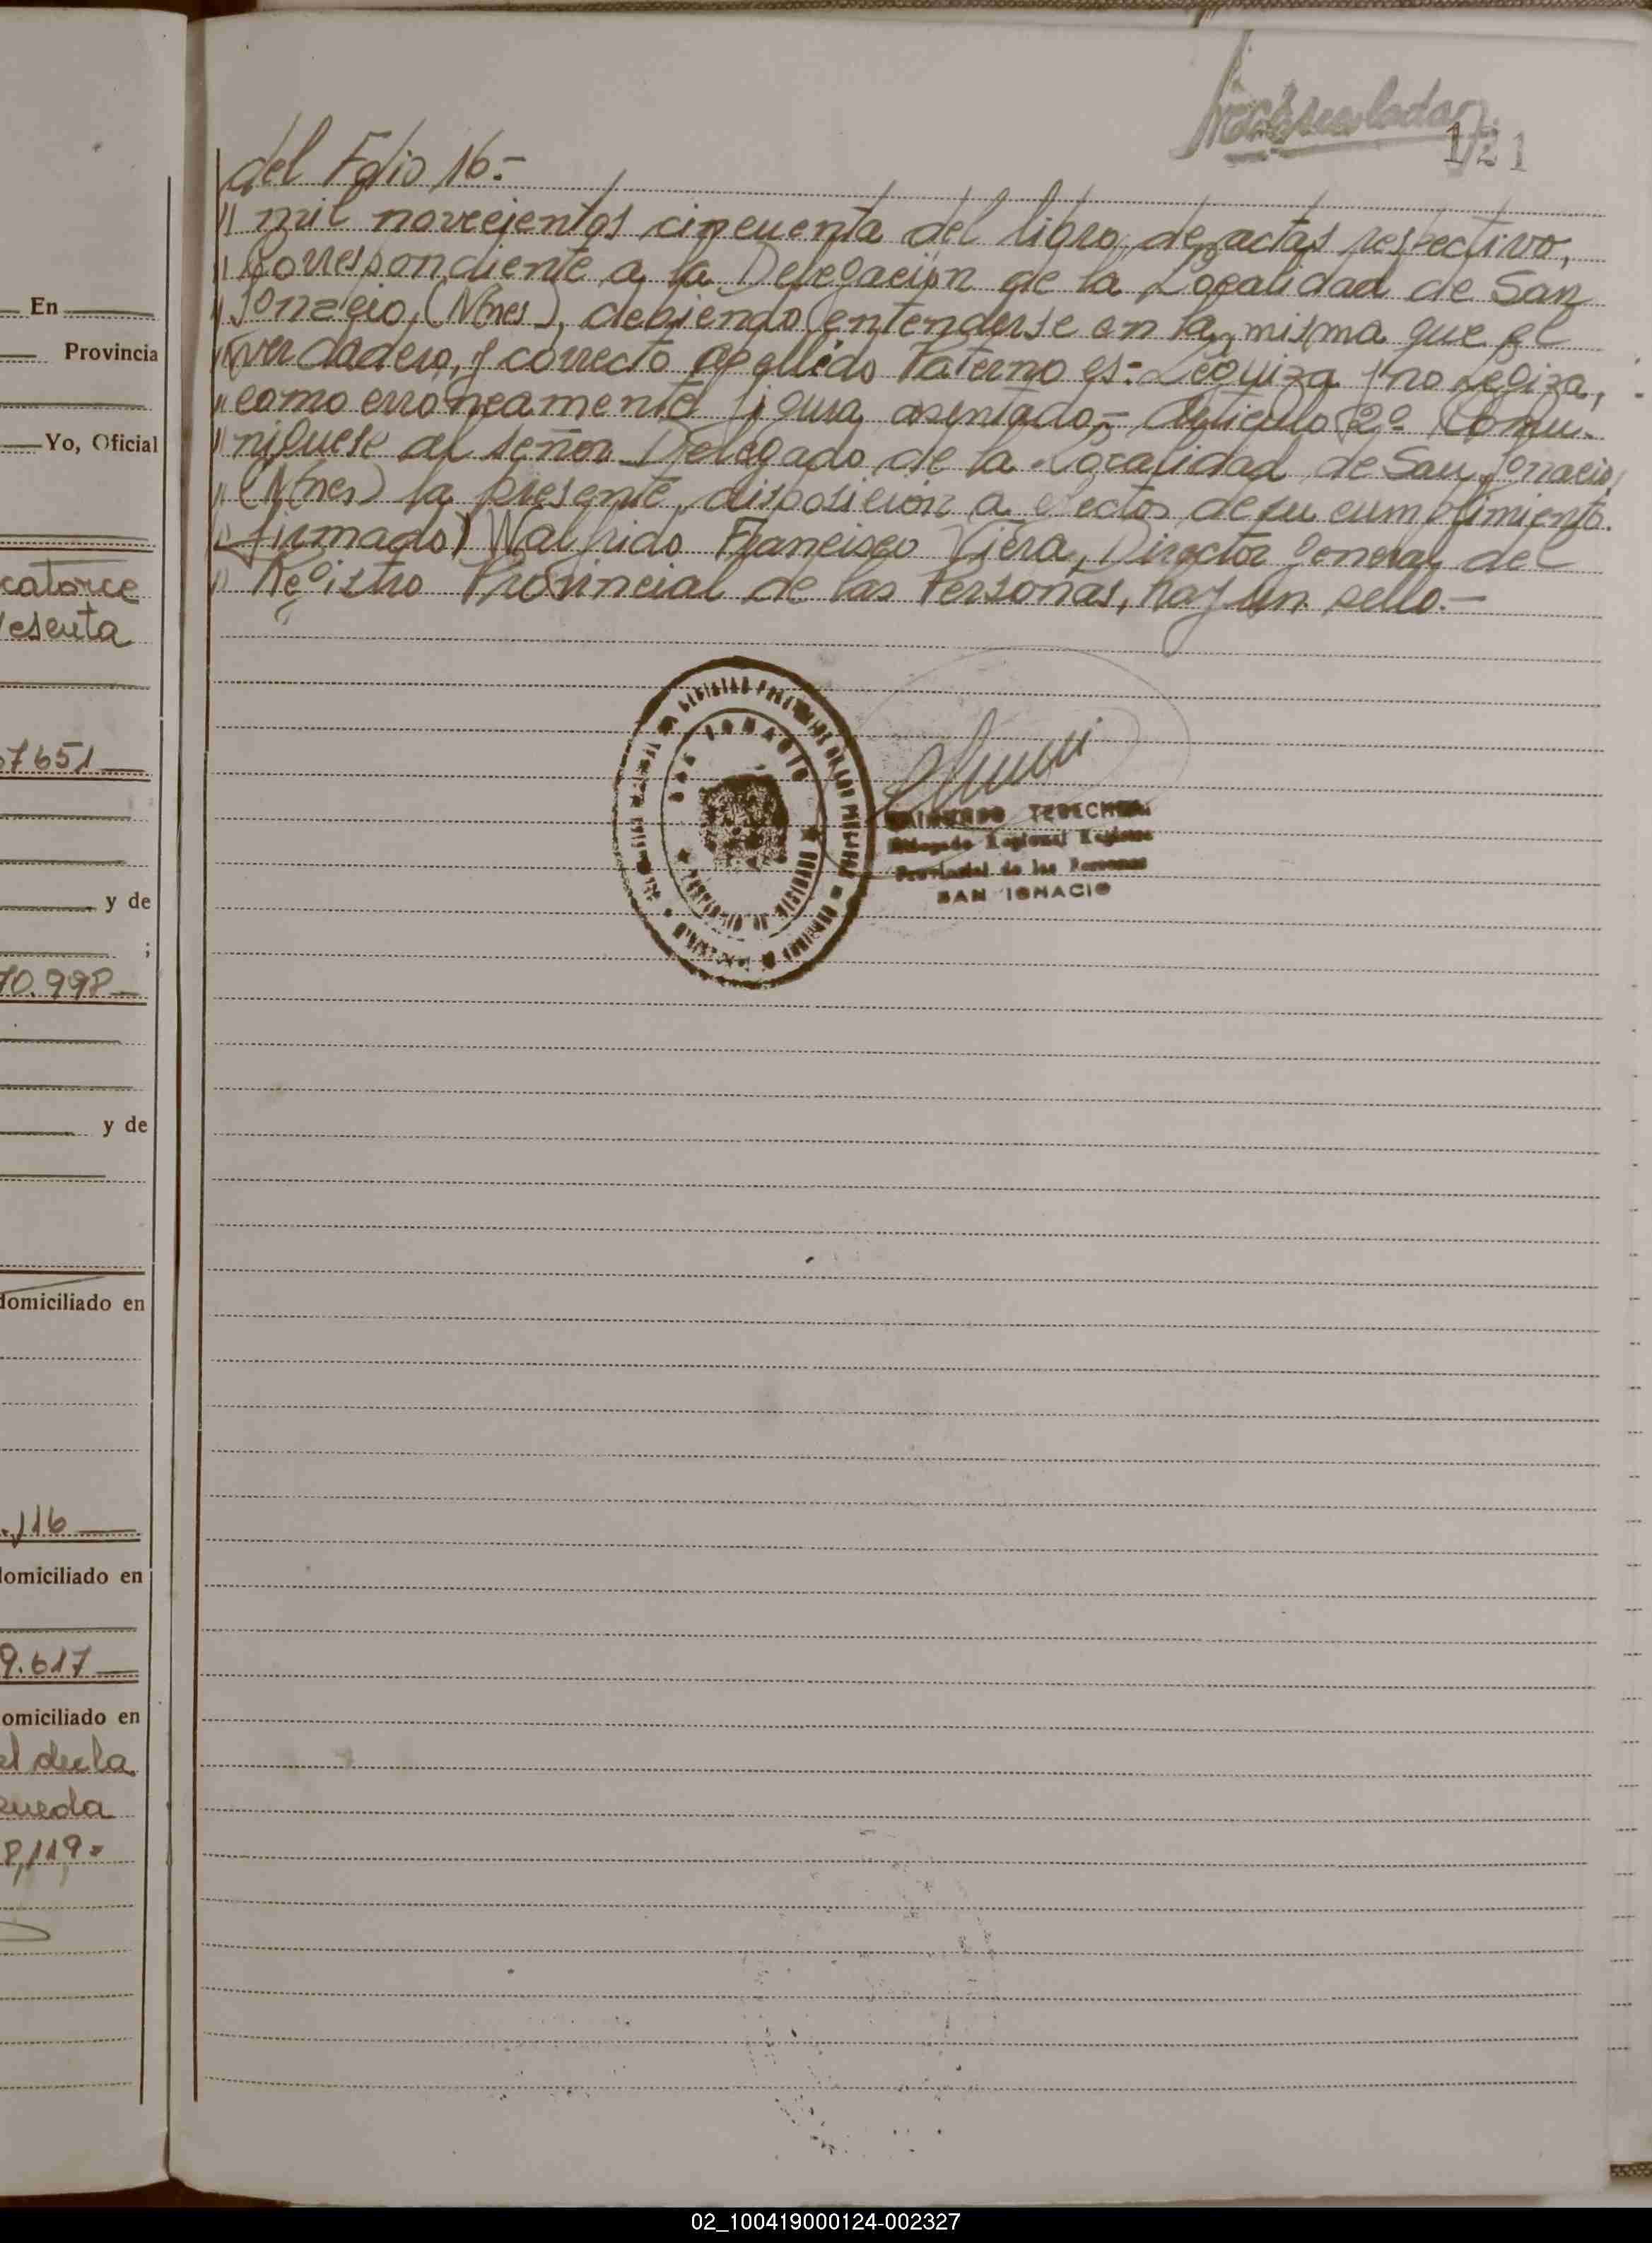 121
del Folio 16.-
" mil novecientos cincuenta del libro de actas respectivo,
" Correspondiente a la Delegación de la Localidad de San
" Ignacio, (Mnes), debiendo entenderse en la misma que el
" verdadero, y correcto apellido Paterno es: Leguiza y no Legiza,
" como erróneamente figura asentado.- Artículo 2º Comu-
" níquese al señor Delegado de la Localidad de San Ignacio,
" (Mnes) la presente disposición a efectos de su cumplimiento.
" firmado) Walfrido Francisco Viera, Director General del
" Registro Provincial de las Personas, hay un sello.-
SAN IGNACIO
TEDECHI
Delegado Regional Registro
Provincial de las Personas
SAN IGNACIO
En
Provincia
Yo, Oficial
catorce
7651
y de
;
70.998
y de
domiciliado en
116
domiciliado en
9.617
omiciliado en
8,119
02_100419000124-002327